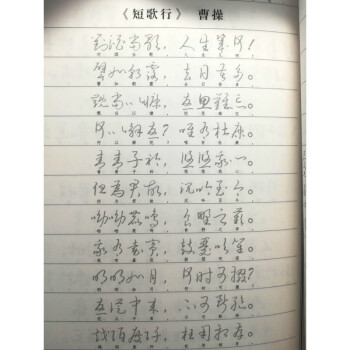 《短歌行》 曹操
对酒当歌，人生几何！
譬如朝露，去日苦多。
慨当以慷，忧思难忘。
何以解忧？唯有杜康。
青青子衿，悠悠我心。
但为君故，沉吟至今。
呦呦鹿鸣，食野之苹。
我有嘉宾，鼓瑟吹笙。
明明如月，何时可掇？
忧从中来，不可断绝。
越陌度阡，枉用相存。